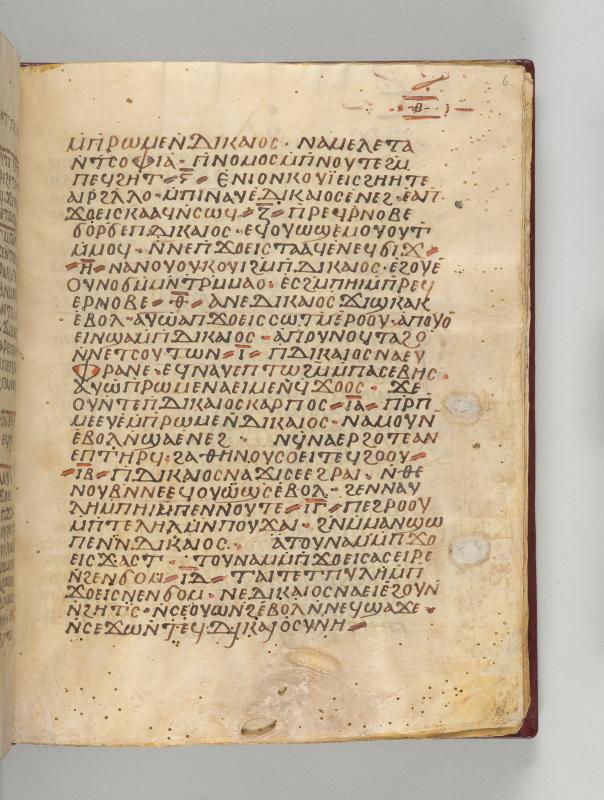 6
ⲑ
ⲙ̄ⲡⲣⲱⲙⲉⲛ̄ⲇⲓⲕⲁⲓⲟⲥ · ⲛⲁⲙⲉⲗⲉⲧⲁ
ⲛ̄ⲧⲥⲟⲫⲓⲁ · ⲡ̄ⲛⲟⲙⲟⲥⲙ̄ⲡⲛⲟⲩⲧⲉϩⲙ̄
ⲡⲉϥϩⲏⲧ ⸗ ⲋ̄ ⸗ ⲉⲛⲓⲟⲛⲕⲟⲩⲓ̈ⲉⲓⲥϩⲏⲏⲧⲉ
ⲁⲓⲣϩⲗ̄ⲗⲟ · ⲙ̄ⲡⲓⲛⲁⲩⲉⲇⲓⲕⲁⲓⲟⲥⲉⲛⲉϩ · ⲉⲁⲡ
ϫⲟⲉⲓⲥⲕⲁⲁϥⲛ̄ⲥⲱϥ ⸗ ⲍ̄ ⸗ ⲡ̄ⲣⲉϥⲣ̄ⲛⲟⲃⲉ
ϭⲟⲣϭⲉⲡⲇⲓⲕⲁⲓⲟⲥ · ⲉϥⲟⲩⲱϣⲉⲙⲟⲩⲟⲩⲧ
ⲙ̄ⲙⲟϥ · ⲛ̄ⲛⲉⲡ̄ϫⲟⲉⲓⲥⲧⲁⲁϥⲉⲛⲉϥϭⲓϫ ·
⸗ ⲏ̄ ⸗ ⲛⲁⲛⲟⲩⲟⲩⲕⲟⲩⲓϩⲙ̄ⲡ̄ⲇⲓⲕⲁⲓⲟⲥ · ⲉϩⲟⲩⲉ
ⲟⲩⲛⲟϭⲙ̄ⲙⲛ̄ⲧⲣⲙ̄ⲙⲁⲟ · ⲉⲥϩⲙ̄ⲡⲏⲓⲙ̄ⲡⲣⲉϥ
ⲉⲣⲛⲟⲃⲉ ⸗ ⲑ̄ ⸗ ⲁⲛⲉⲇⲓⲕⲁⲓⲟⲥϫⲓϣⲕⲁⲕ
ⲉⲃⲟⲗ · ⲁⲩⲱⲁⲡ̄ϫⲟⲉⲓⲥⲥⲱⲧⲙ̄ⲉⲣⲟⲟⲩ · ⲁⲡⲟⲩⲟ
ⲉⲓⲛϣⲁⲙ̄ⲡ̄ⲇⲓⲕⲁⲓⲟⲥ · ⲁⲡⲣⲟⲩⲛⲟϥⲧⲁϩⲟ
ⲛ̄ⲛⲉⲧⲥⲟⲩⲧⲱⲛ ⸗ ⲓ̄ ⸗ ⲡ̄ⲇⲓⲕⲁⲓⲟⲥⲛⲁⲉⲩ
ⲫⲣⲁⲛⲉ · ⲉϥⲛⲁⲩⲉⲡⲧⲱϩⲙ̄ⲡⲁⲥⲉⲃⲏⲥ ·
ⲁⲩⲱⲡ̄ⲣⲱⲙⲉⲛⲁⲉⲓⲙⲉⲛϥ̄ϫⲟⲟⲥ · ϫⲉ
ⲟⲩⲛⲧⲉⲡ̄ⲇⲓⲕⲁⲓⲟⲥⲕⲁⲣⲡⲟⲥ ⸗ ⲓ̄ⲁ̄ ⸗ ⲡ̄ⲣⲡ̄
ⲙⲉⲉⲩⲉⲙ̄ⲡⲣⲱⲙⲉⲛ̄ⲇⲓⲕⲁⲓⲟⲥ · ⲛⲁⲙⲟⲩⲛ
ⲉⲃⲟⲗⲛ̄ϣⲁⲉⲛⲉϩ · ⲛϥ̄ⲛⲁⲉⲣϩⲟⲧⲉⲁⲛ
ⲉⲡⲧⲏⲣϥ̄ · ϩⲁⲑⲏⲛⲟⲩⲥⲟⲉⲓⲧⲉϥϩⲟⲟⲩ ·
⸗ ⲓ̄ⲃ̄ ⸗ ⲡ̄ⲇⲓⲕⲁⲓⲟⲥⲛⲁϫⲓⲥⲉⲉϩⲣⲁⲓ · ⲛ̄ⲑⲉ
ⲛⲟⲩⲃⲛ̄ⲛⲉⲉϥⲟⲩⲱϣ̄ⲥⲉⲃⲟⲗ · ϩⲉⲛⲛⲁⲩ
ⲗⲏⲙ̄ⲡⲏⲓⲙ̄ⲡⲉⲛⲛⲟⲩⲧⲉ ⸗ ⲓ̄ⲅ̄ ⸗ ⲡⲉϩⲣⲟⲟⲩ
ⲙ̄ⲡⲧⲉⲗⲏⲗⲙ̄ⲛⲡⲟⲩϫⲁⲓ · ϩⲛ̄ⲙ̄ⲙⲁⲛϣⲱ
ⲡⲉⲛ̄ⲛ̄ⲇⲓⲕⲁⲓⲟⲥ · ⲁⲧⲟⲩⲛⲁⲙⲙ̄ⲡ̄ϫⲟ
ⲉⲓⲥϫⲁⲥⲧ · ⲧⲟⲩⲛⲁⲙⲙ̄ⲡ̄ϫⲟⲉⲓⲥⲁⲥⲉⲓⲣⲉ
ⲛ̄ϩⲉⲛϭⲟⲙ ⸗ ⲓ̄ⲇ̄ ⸗ ⲧⲁⲓⲧⲉⲧⲡⲩⲗⲏⲙ̄ⲡ
ϫⲟⲉⲓⲥⲛⲉⲛϭⲟⲙ · ⲛⲉⲇⲓⲕⲁⲓⲟⲥⲛⲁⲉⲓⲉϩⲟⲩⲛ
ⲛ̄ϩⲏⲧⲥ̄ · ⲛ̄ⲥⲉⲟⲩⲱⲛϩ̄ⲉⲃⲟⲗⲛ̄ⲛⲉϥϣⲁϫⲉ ·
ⲛ̄ⲥⲉϫⲱⲛ̄ⲧⲉϥⲇⲓⲕⲁⲓⲟⲥⲩⲛⲏ ⸗